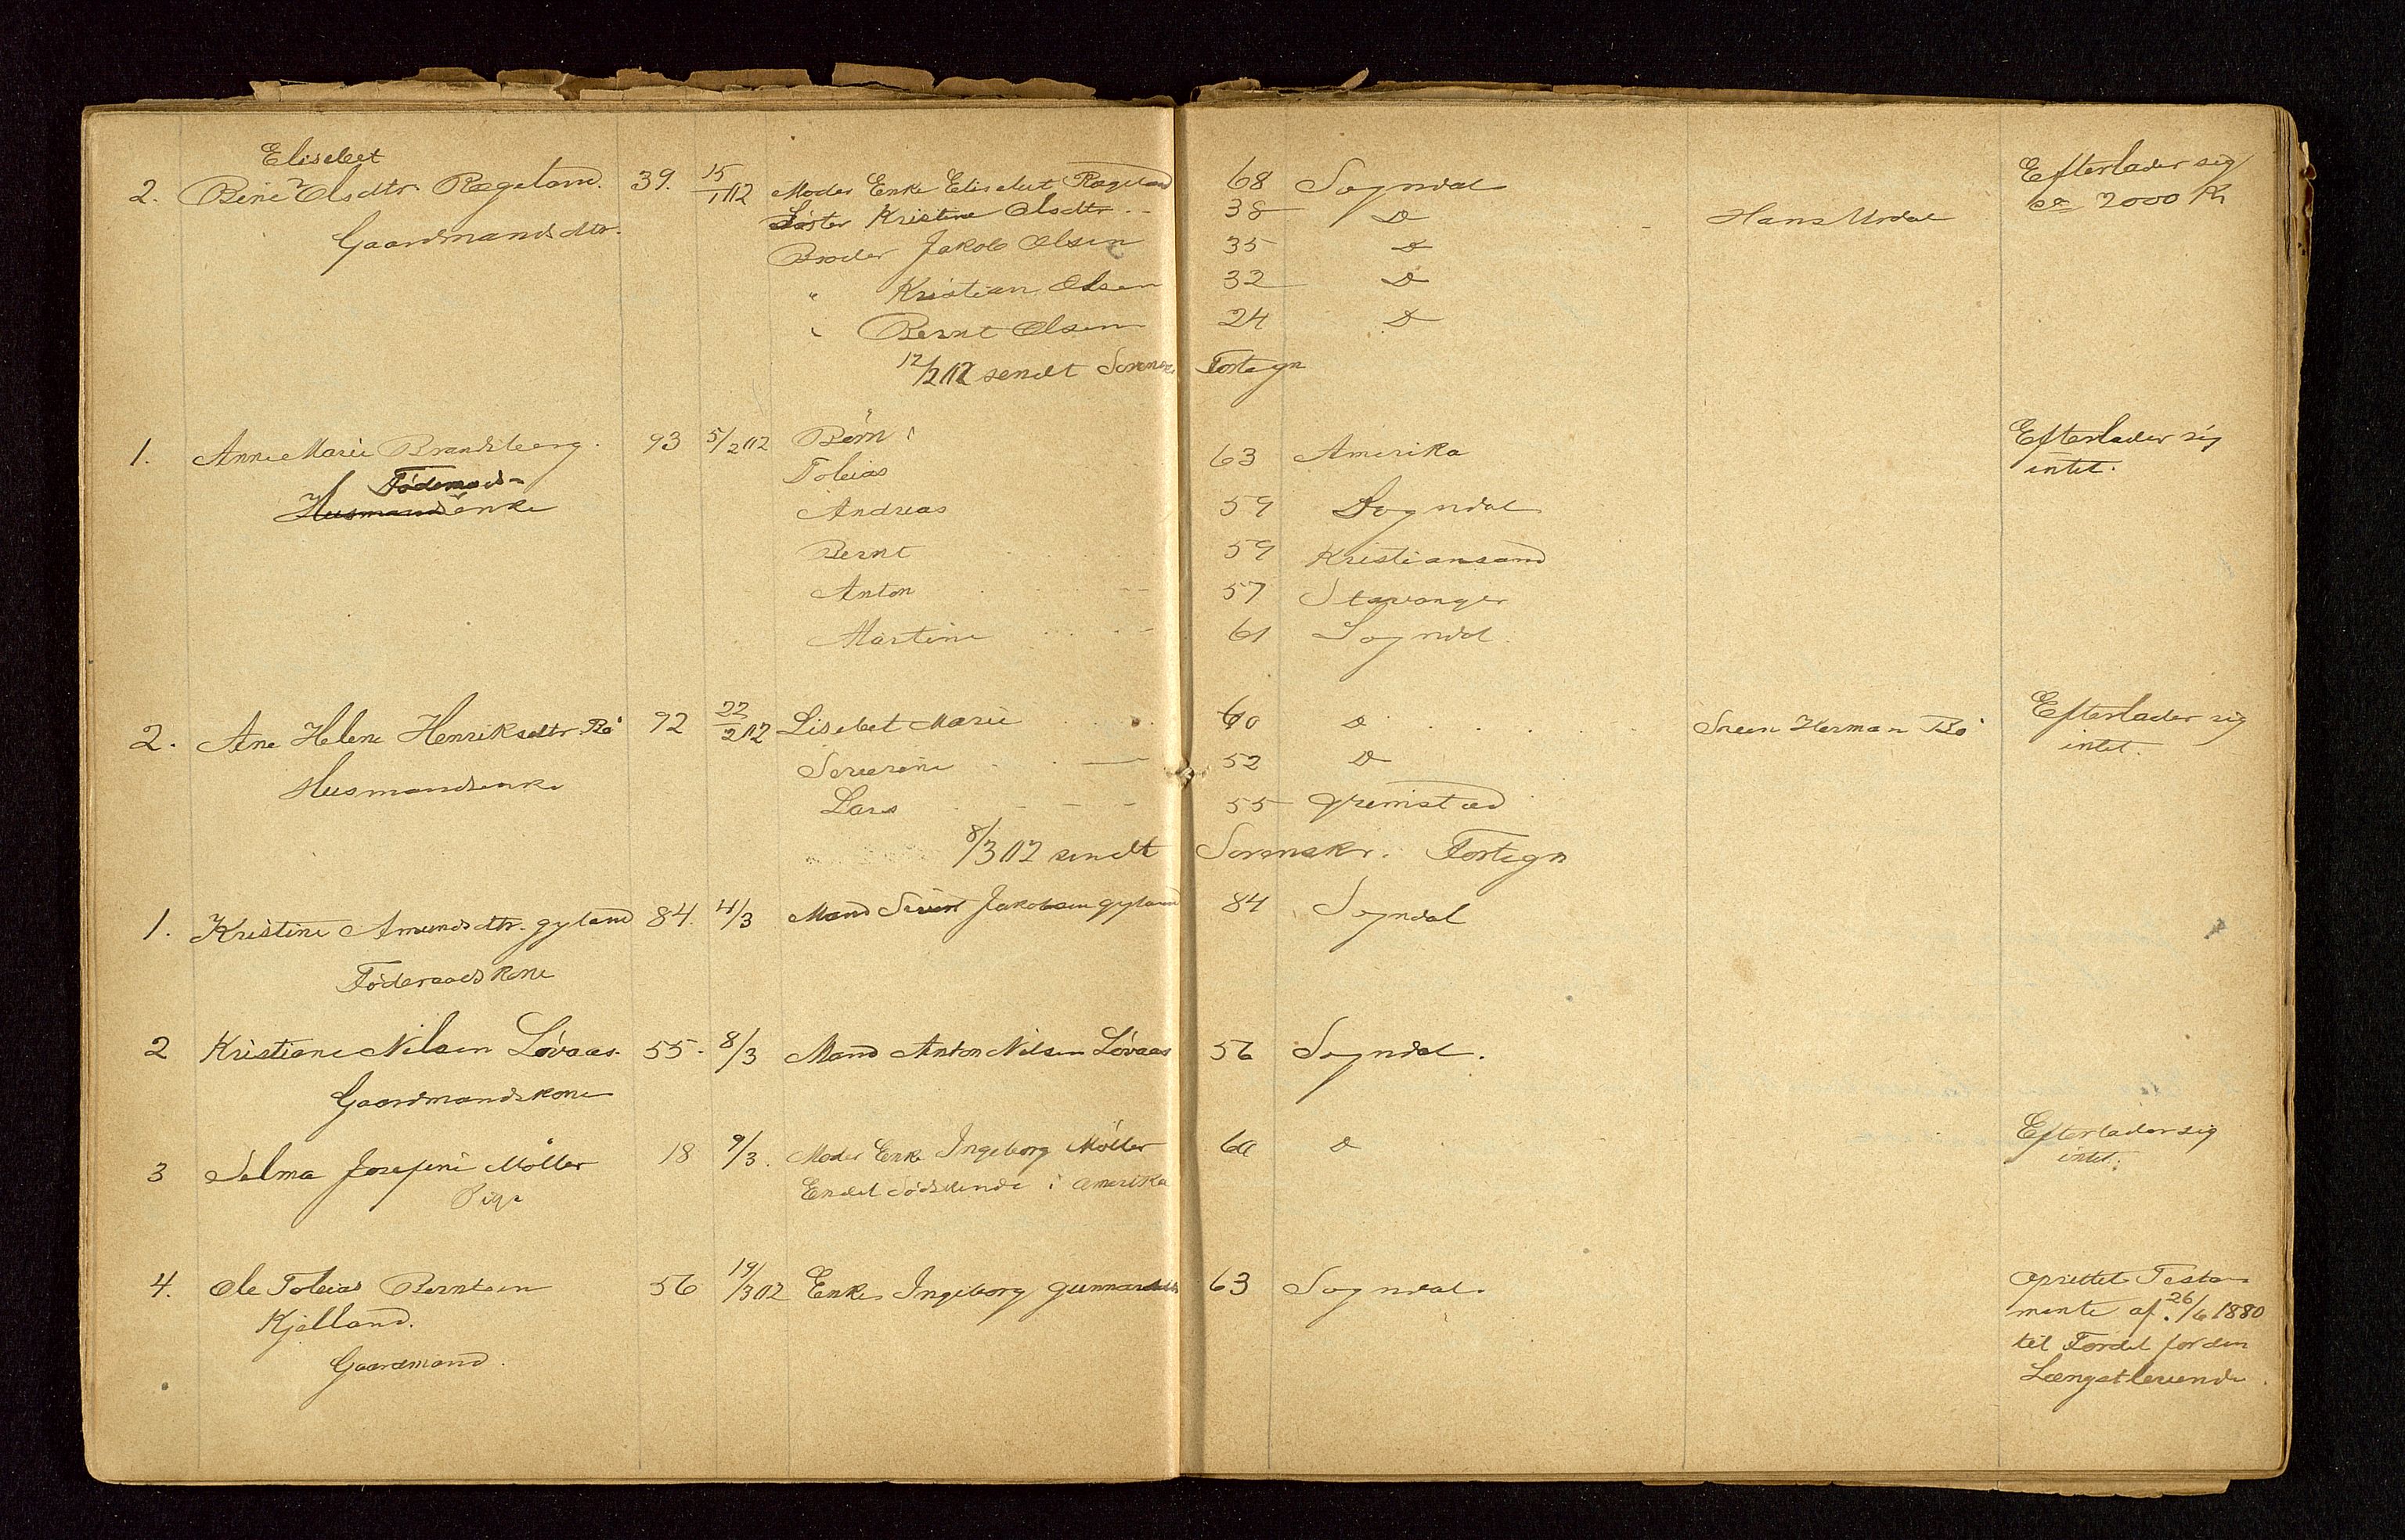 Elisebet
2. Bine Olsdtr. Rægeland. 39. 15/1 12 Moder Enke Elisebet Rægeland 68 Sogndal Efterlader sig
Gaardmandsdtr. Søster Kristine Olsdtr. 38 D Hans Urdal ca 2000 Kr
Broder Jakob Olsen 35 D
" Kristian Olsen 32 D
" Bernt Olsen 24 D
12/2 12 sendt Sorenskr. Fortegn
1. Anne Marie Brandsberg. 93 5/2 12 Børn: Efterlader sig
Tobias 63 Amerika intet.
Föderaads-
Husmandsenke Andreas 59 Sogndal
Bernt 59 Kristiansand
Anton 57 Stavanger
Martine 61 Sogndal.
2. Ane Helene Henriksdtr. Bö 92 22/2 12 Lisebet Marie 60 D Sören Herman Bö Efterlader sig
Husmandsenke Severine 52 D intet.
Lars 55 Grimstad
8/3 12 sendt Sorenskr. Fortegn
1. Kristine Amundsdtr. Gyland 84. 4/3 Mand Sivert Jakobsen Gyland 84 Sogndal
Föderaadskone
2 Kristiane Nilsen Lövaas. 55. 8/3 Mand Anton Nilsen Lövaas 56 Sogndal.
Gaardmandskone
3 Selma Josefine Möller 18 9/3. Moder Enke Ingeborg Möller 60 D Efterlader sig
Pige Endel Södskende i Amerika intet.
4. Ole Tobias Berntsen 56 19/3 12 Enke Ingeborg Gunnarsdtr 63 Sogndal. Oprettet Testa-
Kjelland. mente af 26/6 1880
Gaardmand. til Fordel for den
Længstlevende.